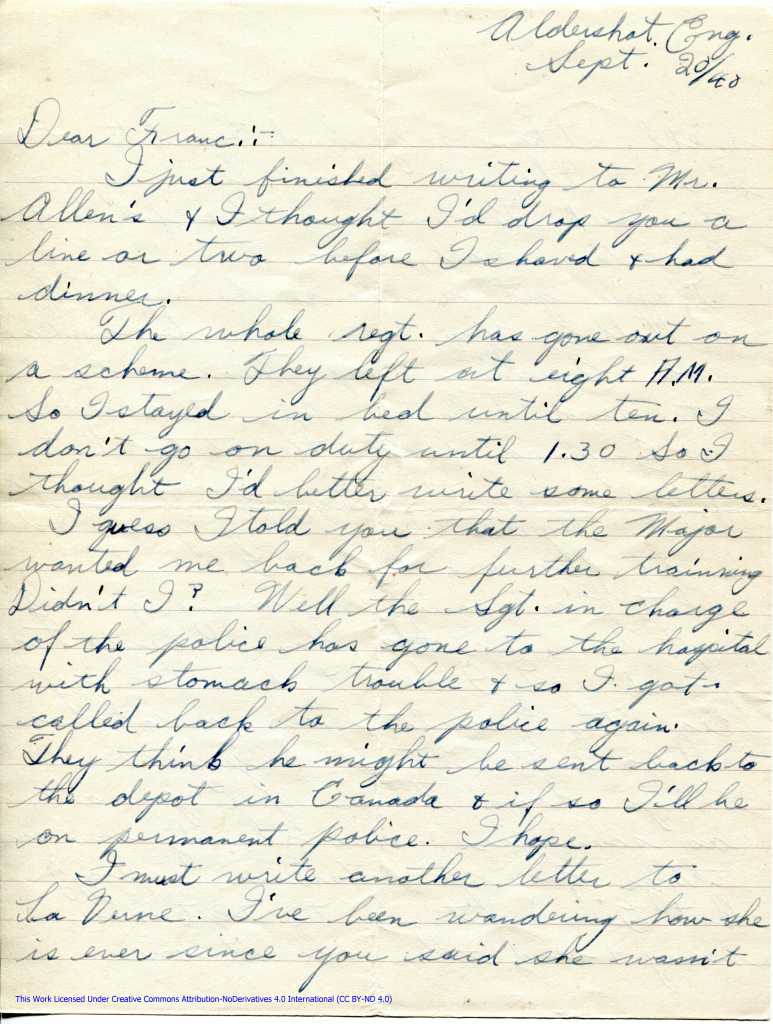 Aldershot, Eng.
Sept. 20/40
Dear Franc.:-
I just finished writing to Mr.
Allen's & I thought I'd drop you a
line or two before I shaved & had
dinner.
The whole regt. has gone out on
a scheme. They left at eight A.M.
So I stayed in bed until ten. I
don't go on duty until 1.30 So I
thought I'd better write some letters.
I guess I told you that the Major
wanted me back for further trainning
Didn't I? Well the Sgt. in charge
of the police has gone to the hospital
with stomach trouble & so I got
called back to the police again.
They think he might be sent back to
the depot in Canada & if so I'll be
on permanent police. I hope.
I must write another letter to
La Verne. I've been wandering how she
is ever since you said she wasn't
This Work Licensed Under Creative Commons Attribution-NoDerivatives 4.0 International (CC BY-ND 4.0)